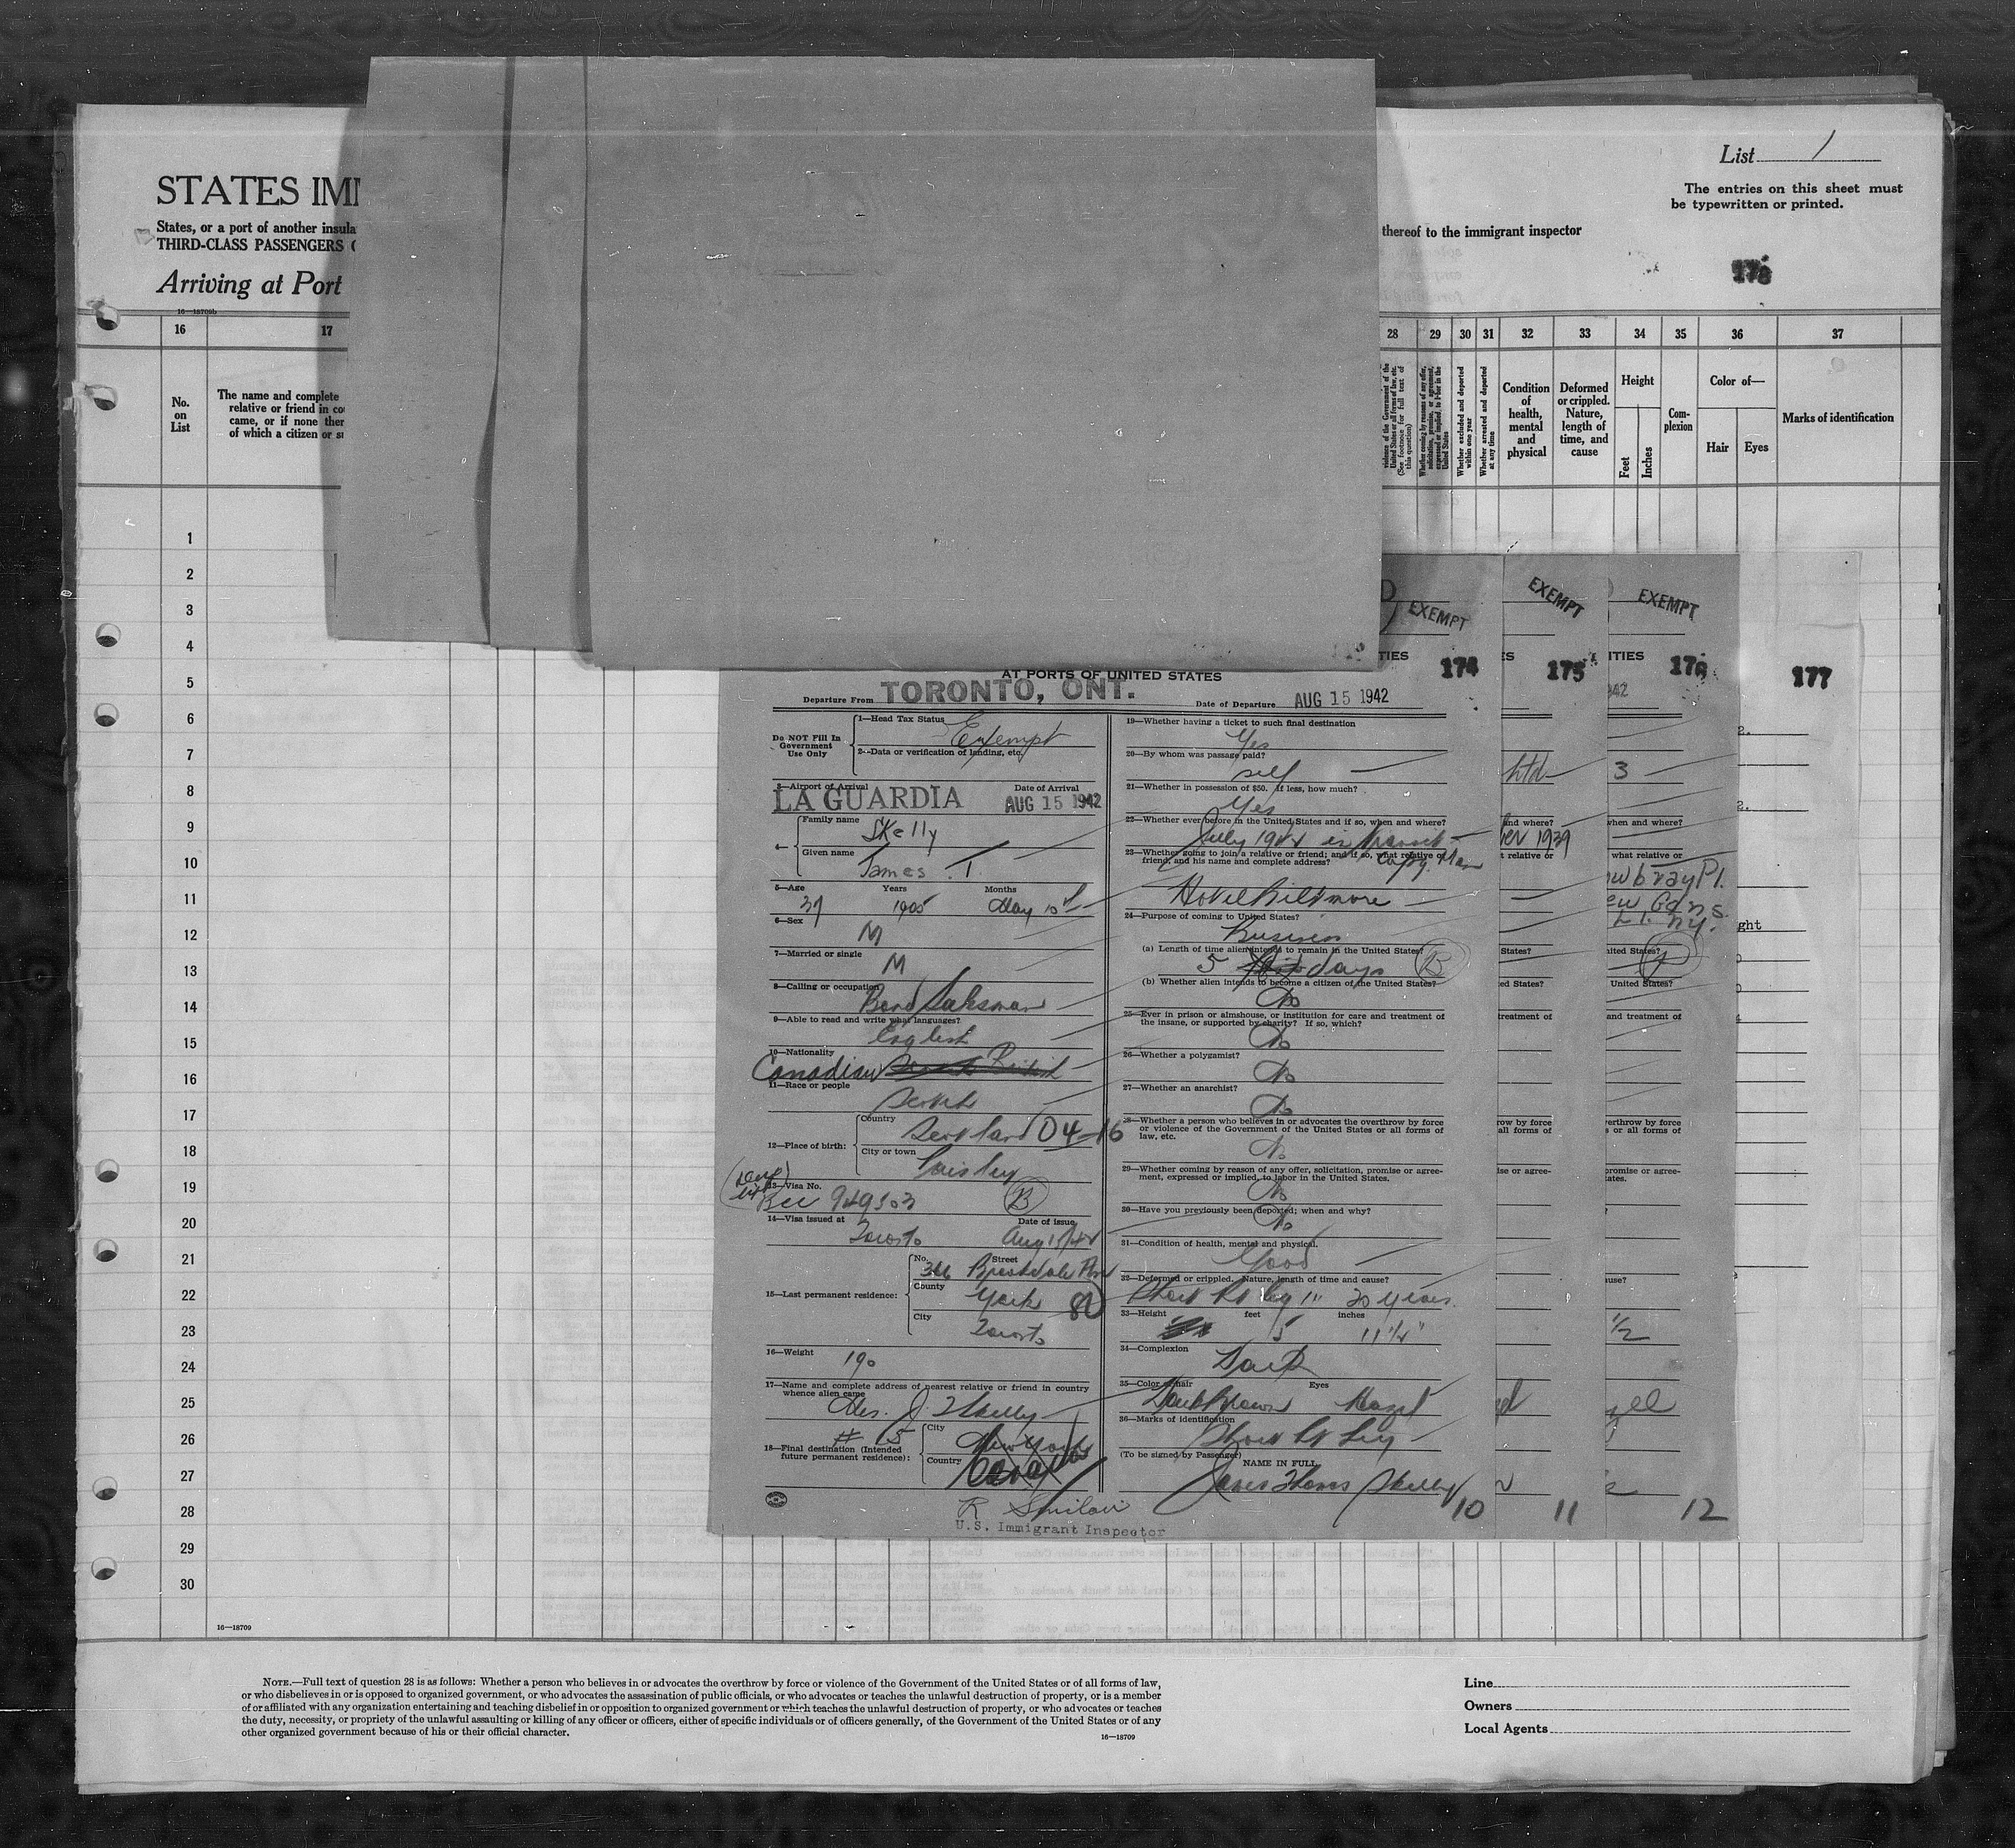 List 1
The entries on this sheet must
be typewritten or printed.
STATES IMI
States, or a port of another insula
THIRD-CLASS PASSENGERS
thereof to the immigrant inspector
Arriving at Port
178
16—18709b
16 17 28 29 30 31 32 33 34 35 36 37
No.
on
List
The name and complete
relative or friend in co
came, or if none ther
of which a citizen or su
violence of the Government of the
United States or all forms of law, etc.
(See footnote for full text of
this question)
Whether coming by reasons of any offer,
solicitation, promise, or agreement,
expressed or implied, to labor in the
United States
Whether excluded and deported
within one year
Whether arrested and deported
at any time
Condition
of
health,
mental
and
physical
Deformed
or crippled.
Nature,
length of
time, and
cause
Height
Feet
Inches
Com-
plexion
Color of—
Hair
Eyes
Marks of identification
1
2
3
4
5
6
7
8
9
10
11
12
13
14
15
16
17
18
19
20
21
22
23
24
25
26
27
28
29
30
16—18709
EXEMPT
EXEMPT
EXEMPT
TIES 174
ES 175
ITIES 176
177
AT PORTS OF UNITED STATES
Departure From TORONTO, ONT.
Date of Departure AUG 15 1942
Do NOT Fill In
Government
Use Only
1—Head Tax Status
Exempt
2—Data or verification of landing, etc.
3—Airport of Arrival
Date of Arrival
LA GUARDIA AUG 15 1942
4—
Family name
Skelly
Given name
James . T.
5—Age Years Months
37 1905 May 10
6—Sex
M
7—Married or single
M
8—Calling or occupation
Bond Salesman
9—Able to read and write what languages?
English
10—Nationality
Canadian British
11—Race or people
Scotch
12—Place of birth:
Country
Scotland 04-16
City or town
Paisley
13—Visa No.
949503 B
14—Visa issued at Date of issue
Toronto Aug
15—Last permanent residence:
No. Street
County
York 80
City
Toronto
16—Weight
190
17—Name and complete address of nearest relative or friend in country
whence alien came
J. Skelly
# 15
18—Final destination (Intended
future permanent residence):
City
New York
Country
Canada
U.S. Immigrant Inspector
19—Whether having a ticket to such final destination
Yes
20—By whom was passage paid?
self
21—Whether in possession of $50. If less, how much?
Yes
22—Whether ever before in the United States and if so, when and where?
July
23—Whether going to join a relative or friend; and if so, what relative or
friend, and his name and complete address?
Hotel Biltmore
24—Purpose of coming to United States?
Business
(a) Length of time alien intends to remain in the United States?
5 days B
(b) Whether alien intends to become a citizen of the United States?
No
25—Ever in prison or almshouse, or institution for care and treatment of
the insane, or supported by charity? If so, which?
No
26—Whether a polygamist?
No
27—Whether an anarchist?
No
28—Whether a person who believes in or advocates the overthrow by force
or violence of the Government of the United States or all forms of
law, etc.
No
29—Whether coming by reason of any offer, solicitation, promise or agree-
ment, expressed or implied, to labor in the United States.
No
30—Have you previously been deported; when and why?
No
31—Condition of health, mental and physical.
Good
32—Deformed or crippled. Nature, length of time and cause?
Short Rt leg 1" 20 years.
33—Height feet inches
5 11 1/4"
34—Complexion
Dark
35—Color of hair Eyes
Dark Brown Hazel
36—Marks of identification
Short Rt Leg
(To be signed by Passenger)
NAME IN FULL
James Thomas Skelly
10
11
12
NOTE.—Full text of question 28 is as follows: Whether a person who believes in or advocates the overthrow by force or violence of the Government of the United States or of all forms of law,
or who disbelieves in or is opposed to organized government, or who advocates the assassination of public officials, or who advocates or teaches the unlawful destruction of property, or is a member
of or affiliated with any organization entertaining and teaching disbelief in or opposition to organized government or which teaches the unlawful destruction of property, or who advocates or teaches
the duty, necessity, or propriety of the unlawful assaulting or killing of any officer or officers, either of specific individuals or of officers generally, of the Government of the United States or of any
other organized government because of his or their official character.
16—18709
Line
Owners
Local Agents